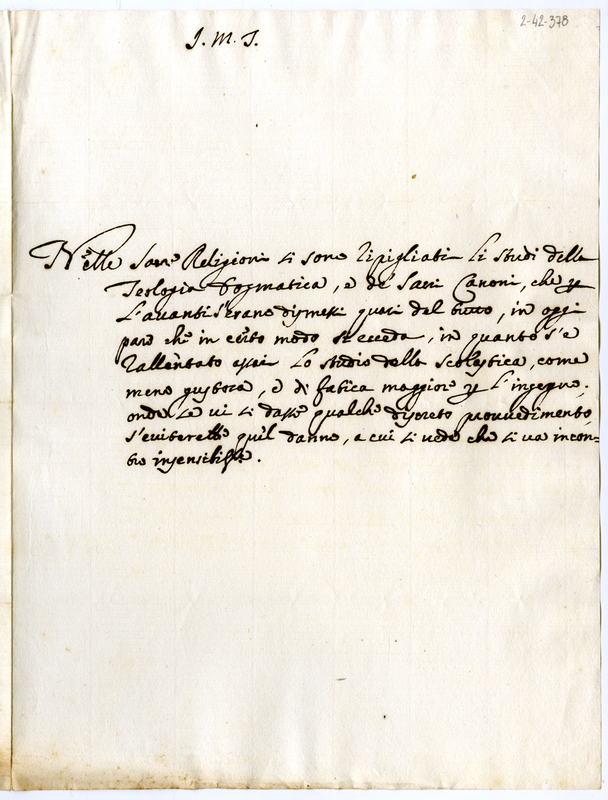 2-42-378
J. M. J.
Nelle Sacre Religioni si sono ripigliati li studi della
Teologia Dogmatica, e de' Sacri Canoni, che p
l'avanti s'erano dismessi quasi del tutto, in oggi
pare che in certo modo si ecceda, in quanto s'è
rallentato assai lo studio della scolastica, come
meno gustosa, e di fatica maggiore p l'ingegno;
onde se vi si dasse qualche discreto provvedimento,
s'eviterebbe quel danno, a cui si vede che si va incon=
tro